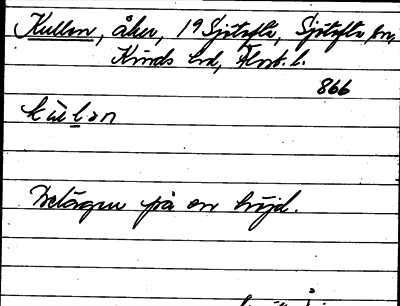 Kullen, åker, 19 Sjötofta, Sjötofta sn,
Kinds hd, Älvsb. l.
866
Belägen på en höjd.